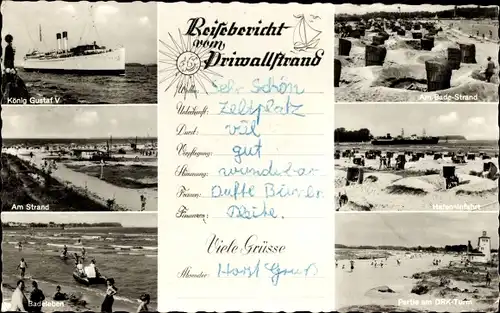 Reisebericht
vom
Priwallstrand
Wetter: Sehr Schön
Unterkunft: Zeltplatz
Durst: viel
Verpflegung: gut
Stimmung: wunderbar
Preise: Dufte
Finanzen: Pleite.
Viele Grüsse
Absender: Horst
König Gustaf V
Am Strand
Badeleben
Am Bade-Strand
Hafeneinfahrt
Partie am DRK-Turm